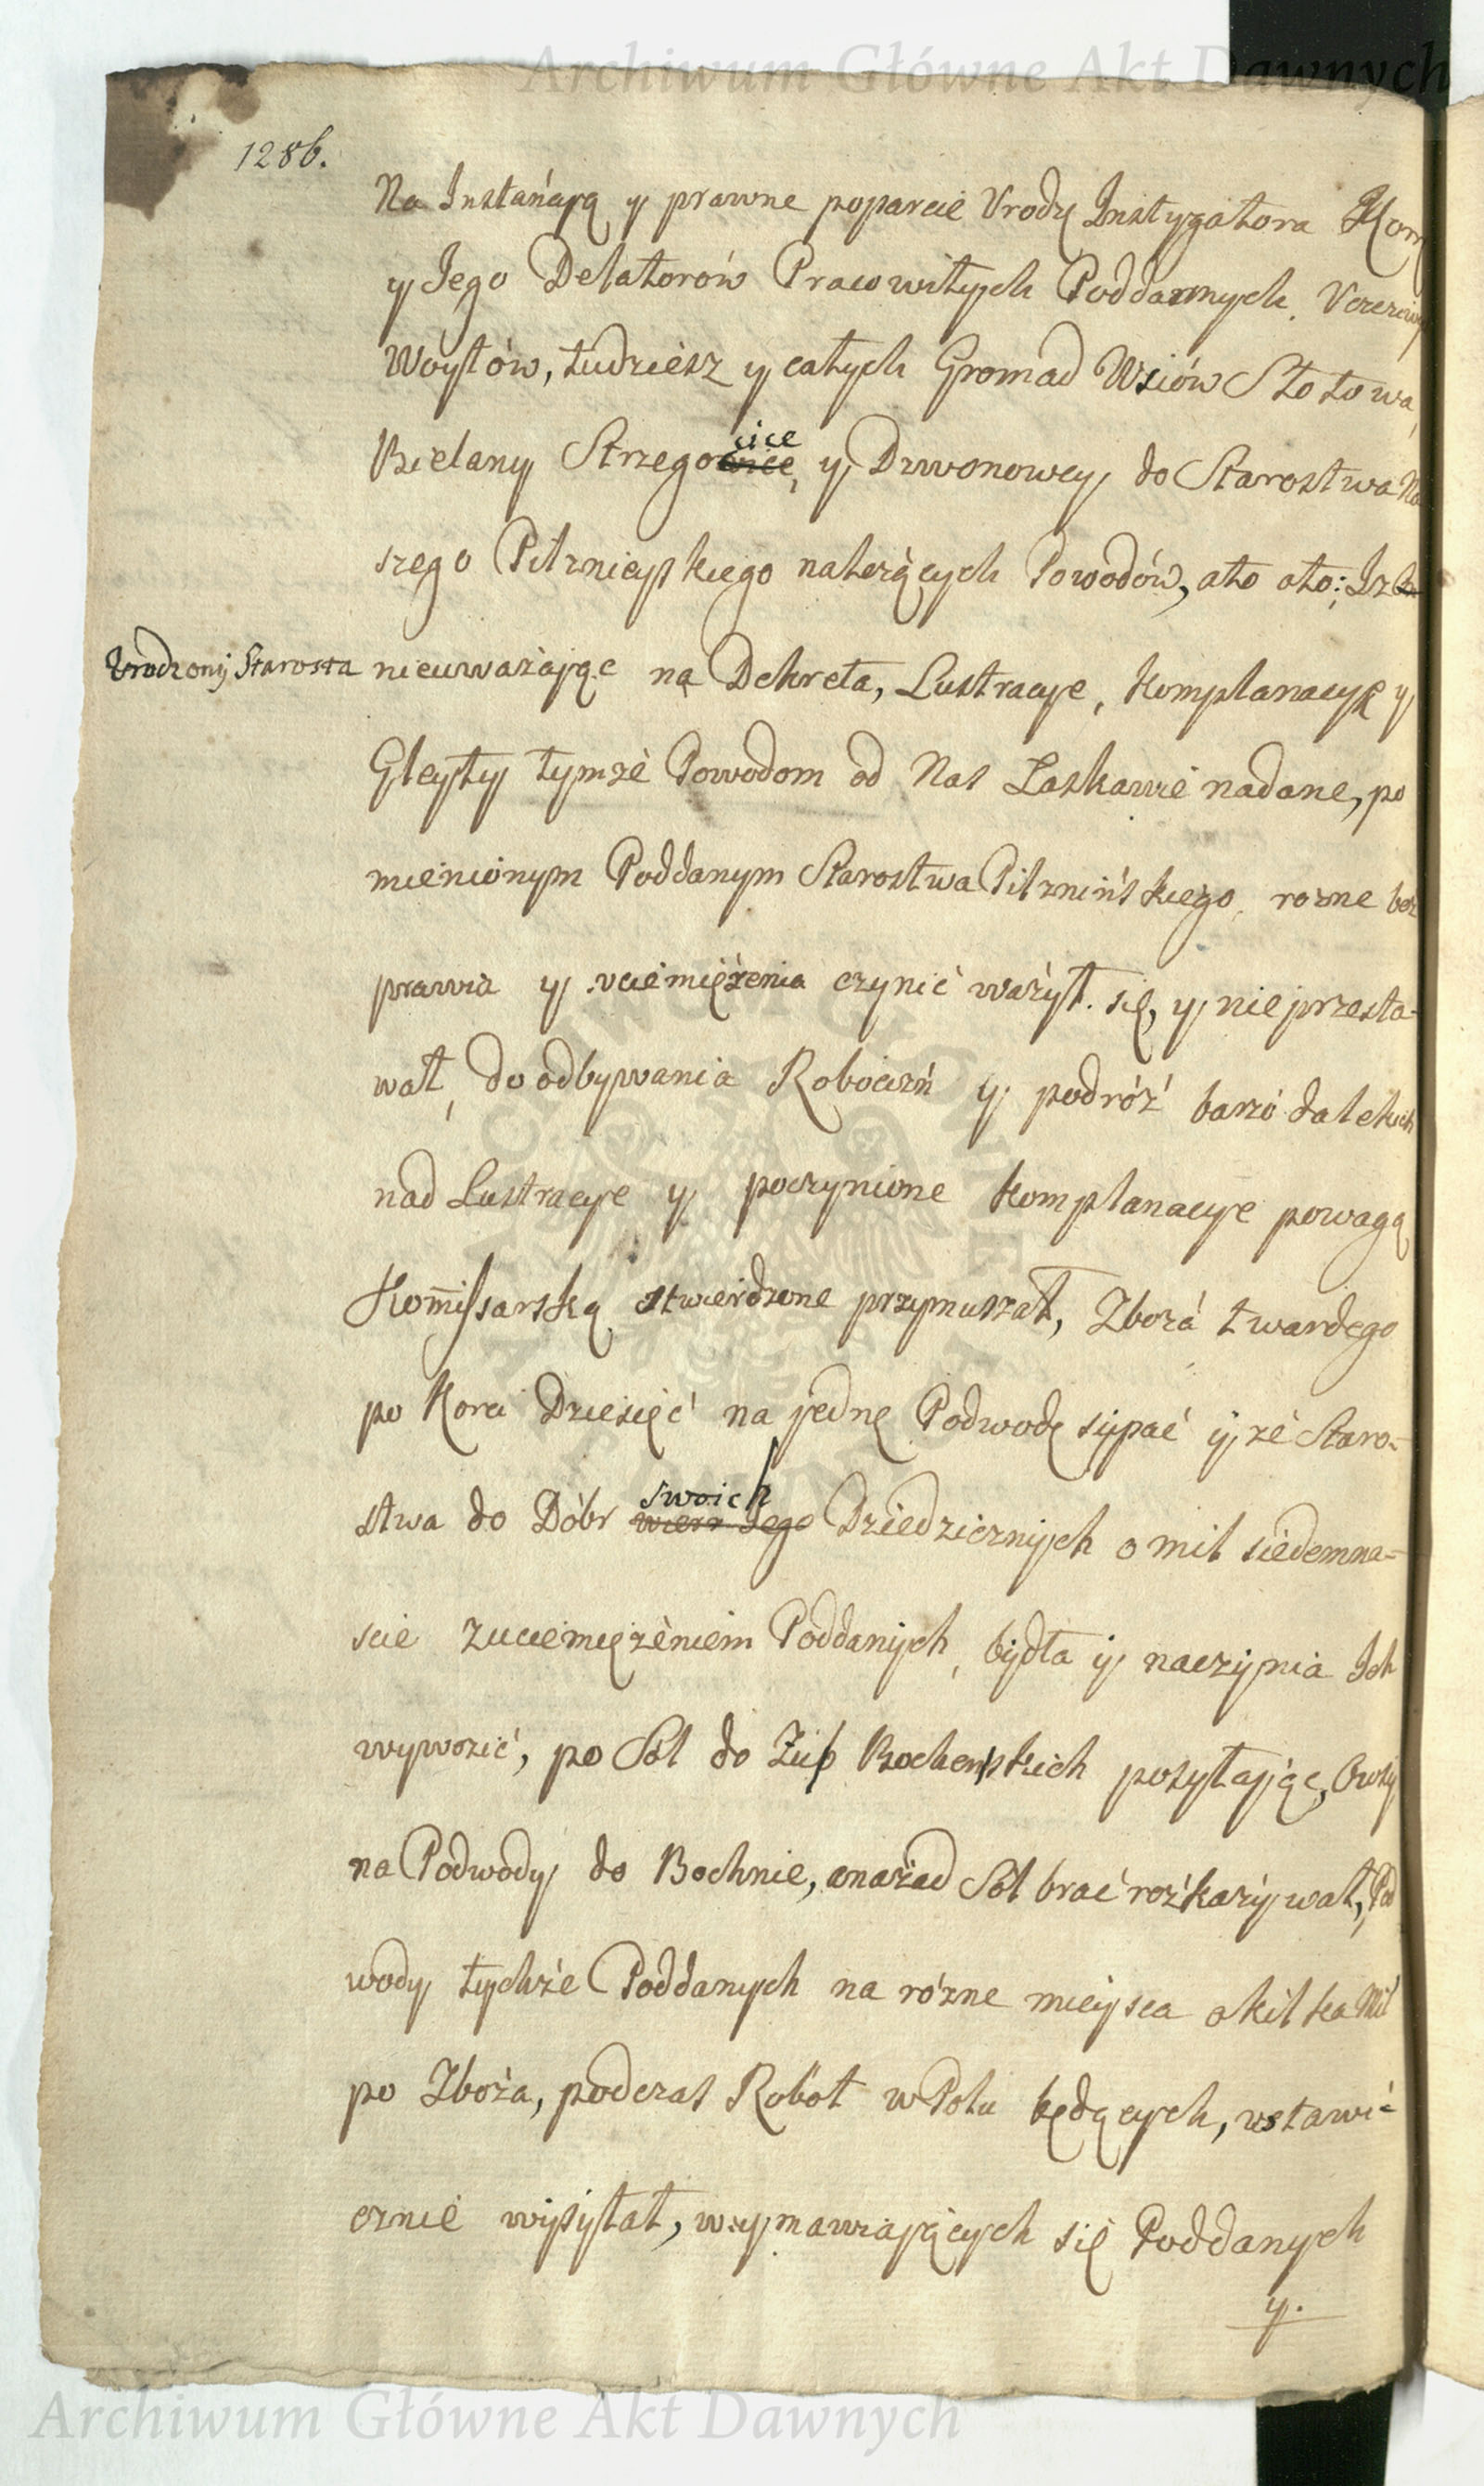 Archiwum Główne Akt Dawnych
1286.
Na Instáńcyą y prawne poparcie Vrodź Instygatora Kor
y Jego Delatorów Pracowitych Poddannych, Vczciwy
Woytów, tudziesz y całych Gromad Wsiów Słotowa,
Bielany Strzegowice, cice y Dzwonowey do Starostwa Na
szego Pilznieyskiego należących Powodów, ato oto; Isz
Urodzony Starosta nieuważając na Dekreta, Lustracye, Komplanacyę y
Gleyty tymże Powodom od Nas Łaskawie nadane, po
mienionym Poddanym Starostwa Pilznińskiego, rozne bez
prawia y vciemiężenia czynić ważył się, y nieprzesta-
wał, do odbywania Roboczn y podróż barzo dalekich
nad Lustracye y poczynione Komplanacye powagą
Kommissarską stwierdzone przymuszał, Zboża twardego
po Korcy Dziesięć na jednę Podwodę sypać y ze Staro-
stwa do Dóbr swoich Jego Dziedzicznych o mil siedemna-
scie zuciemiężeniem Poddanych, bydła y naczynia Ich
wywozić, po Sól do Żup Bocheńskich posyłając, Owsy
na Podwody do Bochnie, anazad Sól brać rozkazywał, Pod
wody tychże Poddanych na rózne mieysca o kilka Mil
po Zboża, podczas Robót w Polu będących, vstawi-
cznie wysyłał, wymawiających się Poddanych
y.
Archiwum Główne Akt Dawnych